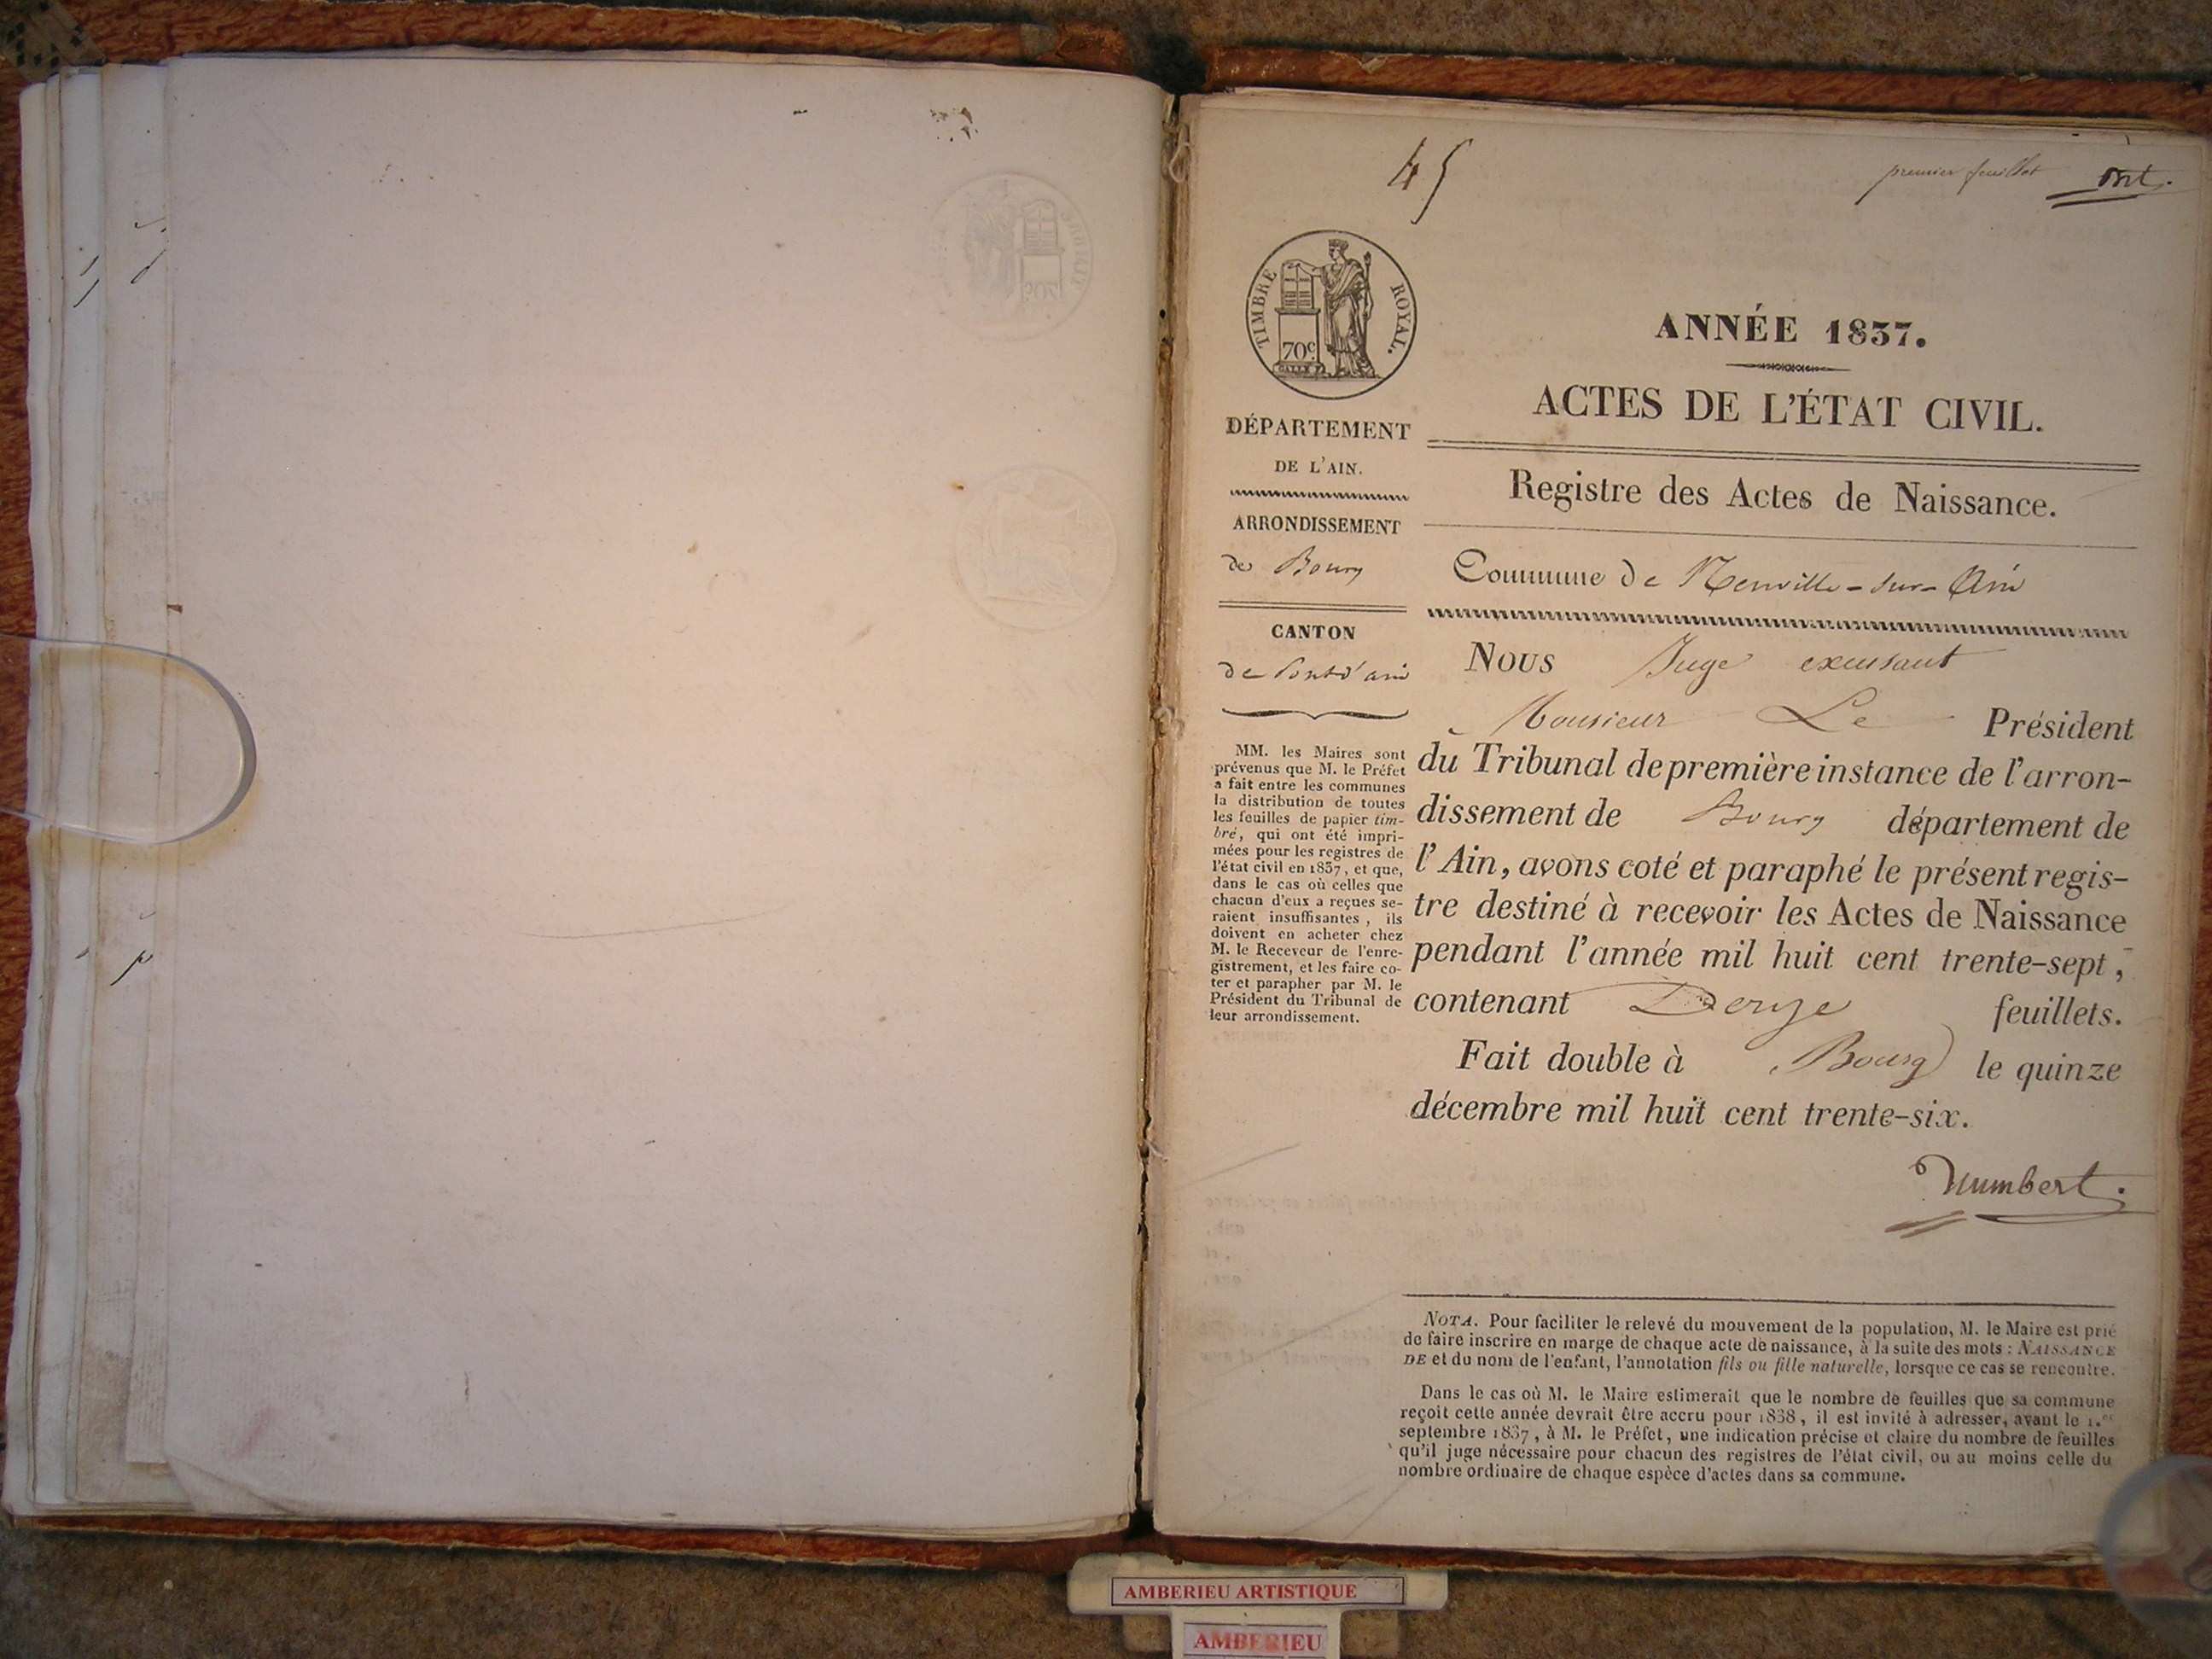 45
premier feuillet
TIMBRE ROYAL.
70c.
ANNÉE 1837.
ACTES DE L'ÉTAT CIVIL.
Registre des Actes de Naissance.
Commune de Neuville-sur-Ain
DÉPARTEMENT
DE L'AIN.
ARRONDISSEMENT
de Bourg
CANTON
de Pont d'ain
MM. les Maires sont
prévenus que M. le Préfet
a fait entre les communes
la distribution de toutes
les feuilles de papier tim-
bré, qui ont été impri-
mées pour les registres de
l'état civil en 1837, et que,
dans le cas où celles que
chacun d'eux a reçues se-
raient insuffisantes, ils
doivent en acheter chez
M. le Receveur de l'enre-
gistrement, et les faire co-
ter et parapher par M. le
Président du Tribunal de
leur arrondissement.
Nous Juge excusant
Monsieur Le Président
du Tribunal de première instance de l'arron-
dissement de Bourg département de
l'Ain, avons coté et paraphé le présent regis-
tre destiné à recevoir les Actes de Naissance
pendant l'année mil huit cent trente-sept,
contenant feuillets.
Fait double à Bourg le quinze
décembre mil huit cent trente-six.
Humbert.
NOTA. Pour faciliter le relevé du mouvement de la population, M. le Maire est prié
de faire inscrire en marge de chaque acte de naissance, à la suite des mots : NAISSANCE
DE et du nom de l'enfant, l'annotation fils ou fille naturelle, lorsque ce cas se rencontre.
Dans le cas où M. le Maire estimerait que le nombre de feuilles que sa commune
reçoit cette année devrait être accru pour 1838, il est invité à adresser, avant le 1.er
septembre 1837, à M. le Préfet, une indication précise et claire du nombre de feuilles
qu'il juge nécessaire pour chacun des registres de l'état civil, ou au moins celle du
nombre ordinaire de chaque espèce d'actes dans sa commune.
AMBERIEU ARTISTIQUE
AMBERIEU